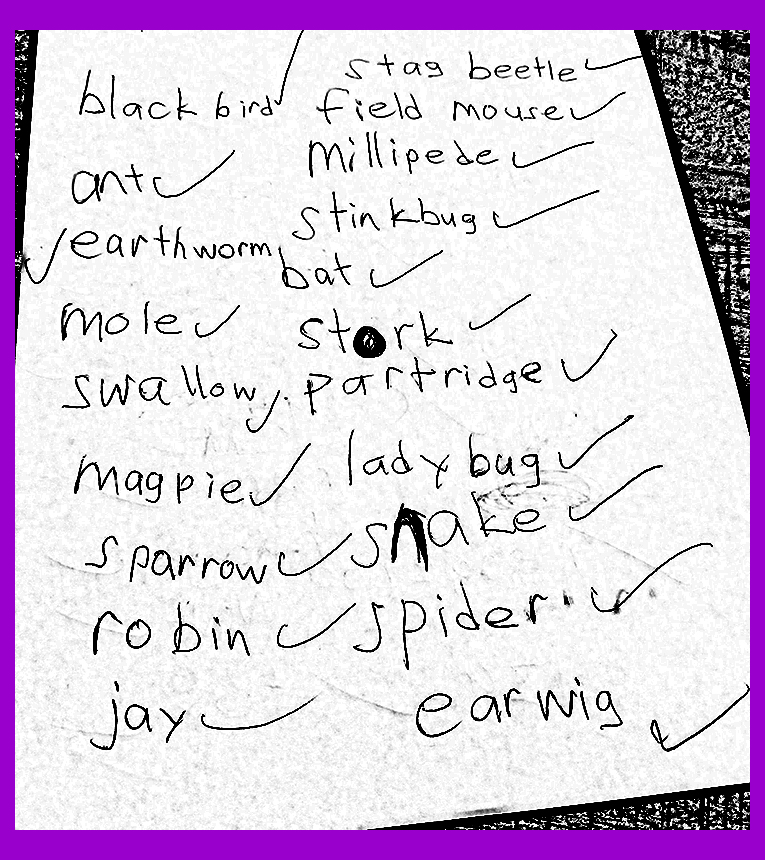 black bird
ant
earthworm
mole
swallow
magpie
sparrow
robin
jay
stag beetle
field mouse
millipede
stinkbug
bat
stork
partridge
ladybug
snake
spider
earwig